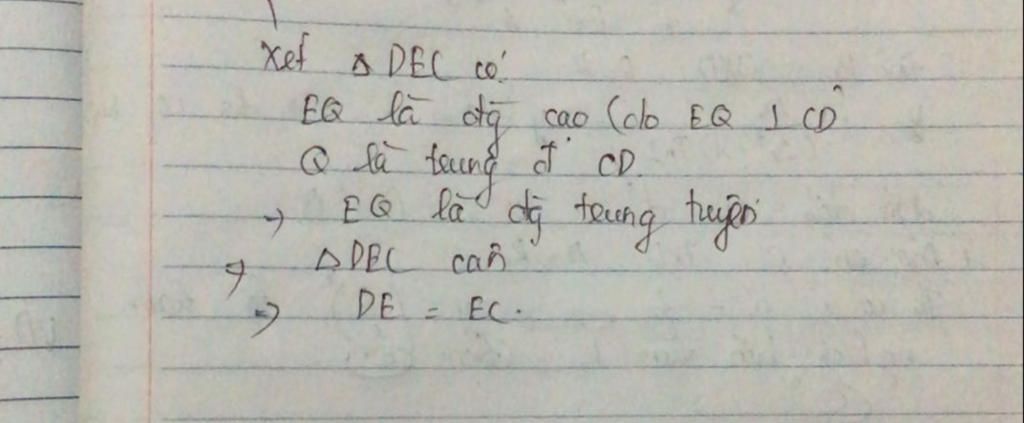 Xét △ DEC có
EQ là đg̀ cao (do EQ ⊥ CD
Q là trung đ' CD.
→ EQ là đg̀ trung tuyến
⇒ △DEC cân
⇒ DE = EC.